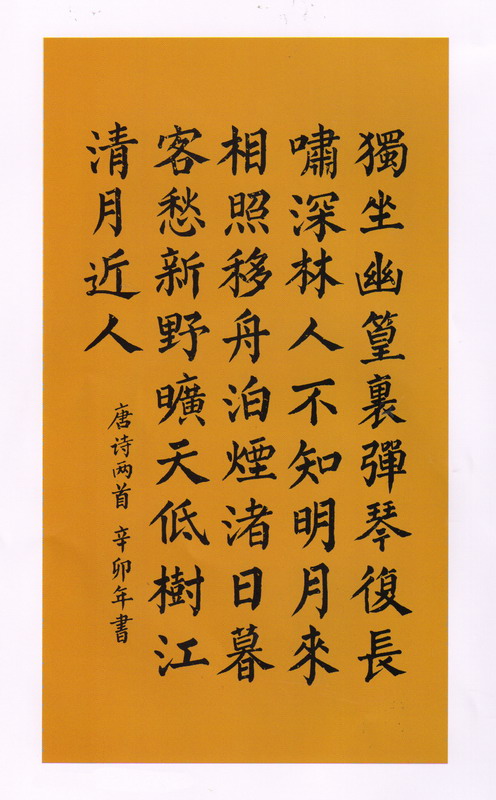 獨坐幽篁裏彈琴復長
嘯深林人不知明月來
相照移舟泊煙渚日暮
客愁新野曠天低樹江
清月近人
唐诗两首 辛卯年書